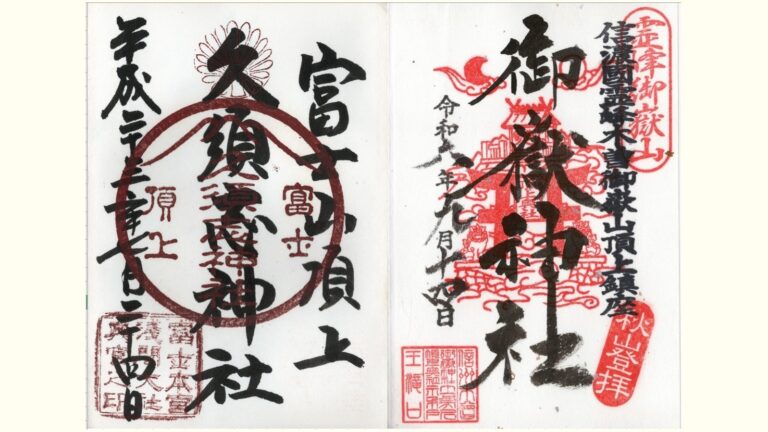 富士山頂上
久須志神社
平成二十三年七月二十四日
富士
頂上
富士本宮
浅間大社
霊峯御嶽山
信濃國霊峰木曽御嶽山頂上鎮座
御嶽神社
令和六年九月十四日
秋山登拝
王滝口